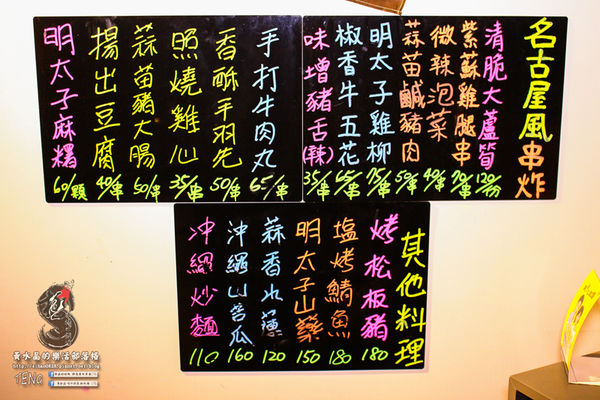 名古屋風串炸
清脆大蘆筍 120/份
紫蘇雞腿串 70/串
微辣泡菜 40/串
蒜苗鹹豬肉 50/串
明太子雞柳 75/串
椒香牛五花 65/串
味增豬舌(辣) 35/串
手打牛肉丸 65/串
香酥手羽先 50/串
照燒雞心 35/串
蒜苗豬大腸 50/串
揚出豆腐 40/串
明太子麻糬 60/顆
其他料理
烤松板豬 180
塩烤鯖魚 180
明太子山藥 150
蒜香水蓮 120
沖繩山苦瓜 160
沖繩炒麵 110
黃水晶的樂活部落格
TENO